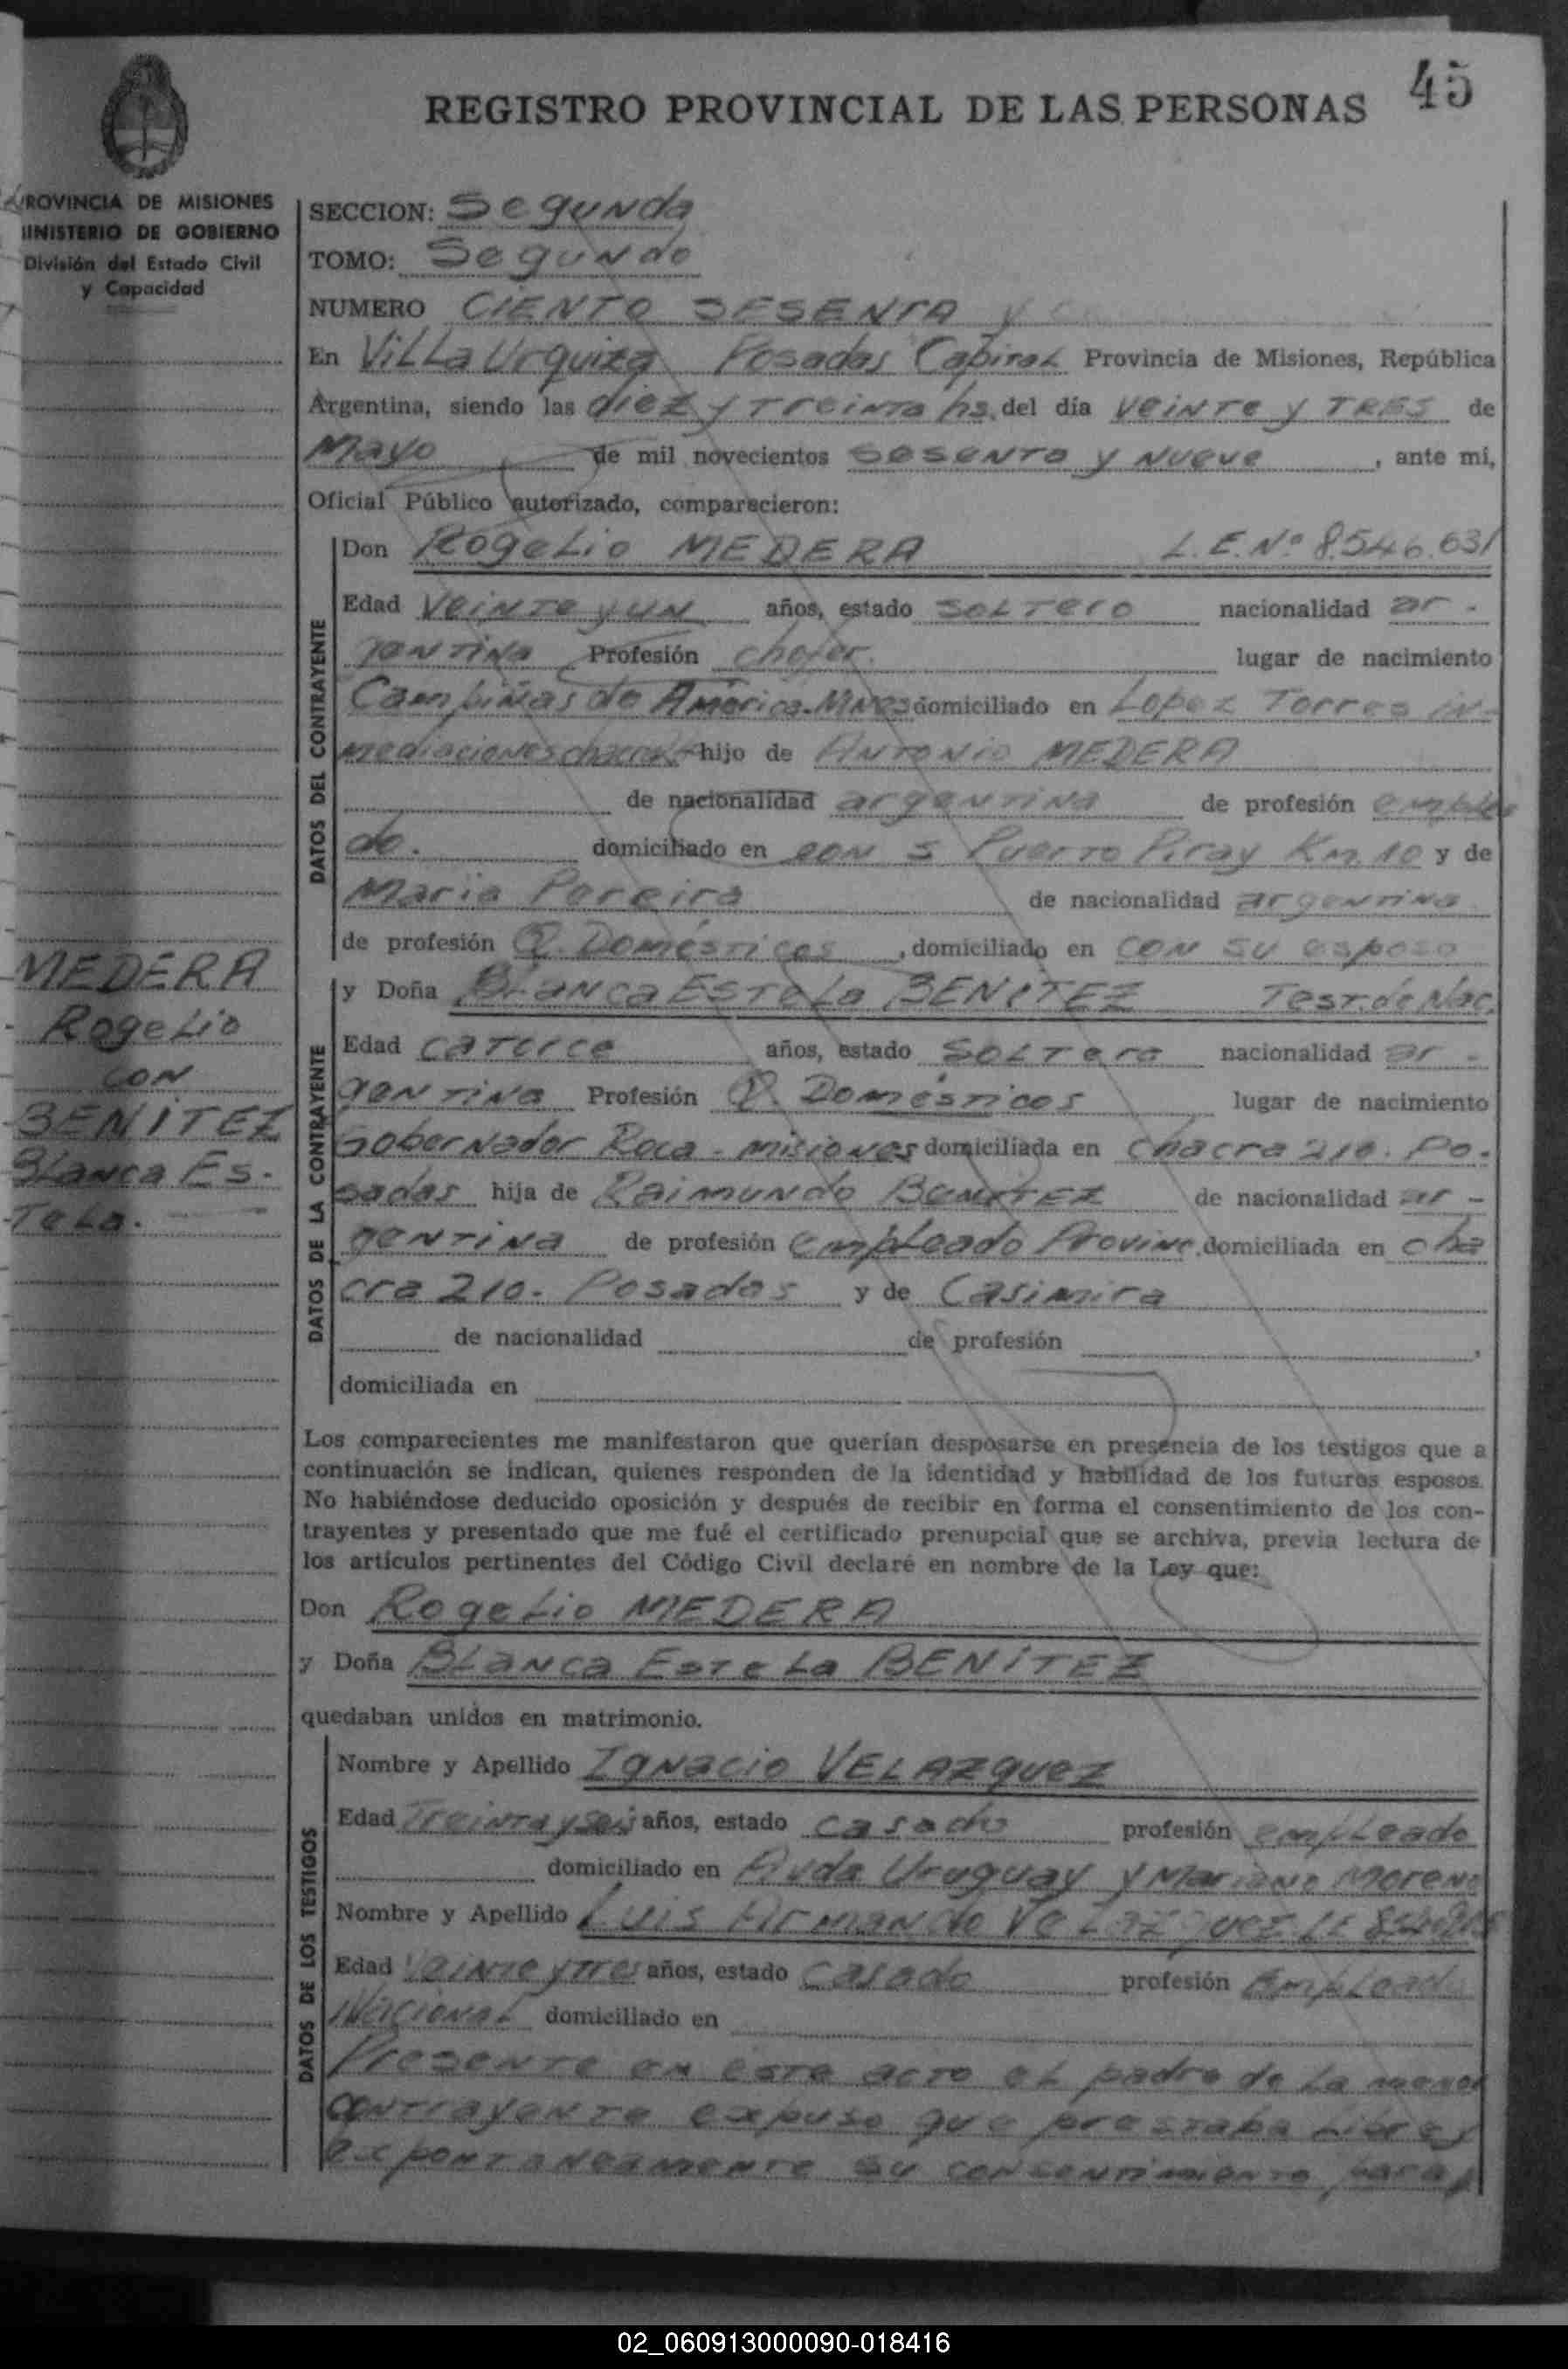 45
REGISTRO PROVINCIAL DE LAS PERSONAS
ROVINCIA DE MISIONES
INISTERIO DE GOBIERNO
División del Estado Civil
y Capacidad
MEDERA
Rogelio
CON
BENITEZ
Blanca Es-
tela.
SECCION: Segunda
TOMO: Segundo
NUMERO CIENTO SESENTA y
En Villa Urquiza Posadas Capital Provincia de Misiones, República
Argentina, siendo las diez y treinta hs. del día veinte y TRES de
Mayo de mil novecientos sesenta y nueve, ante mi,
Oficial Público autorizado, comparecieron:
DATOS DEL CONTRAYENTE
Don Rogelio MEDERA L.E. Nº 8.546.631
Edad veinte y un años, estado soltero nacionalidad ar-
gentina Profesión chofer. lugar de nacimiento
Campiñas de América-Mnes domiciliado en Lopez Torres in-
mediaciones hijo de Antonio MEDERA
de nacionalidad argentina de profesión emplea
do. domiciliado en Puerto Piray Km. 10 y de
Maria Pereira de nacionalidad argentina
de profesión Q. Domésticos, domiciliado en con su esposo
DATOS DE LA CONTRAYENTE
y Doña Blanca Estela BENITEZ Test. de Nac.
Edad catorce años, estado soltera nacionalidad ar-
gentina Profesión Q. Domésticos lugar de nacimiento
Gobernador Roca - misiones domiciliada en chacra 210. Po-
sadas hija de Raimundo BENITEZ de nacionalidad ar-
gentina de profesión empleado Provinc. domiciliada en cha
cra 210. Posadas y de Casimira
de nacionalidad de profesión ,
domiciliada en
Los comparecientes me manifestaron que querían desposarse en presencia de los testigos que a
continuación se indican, quienes responden de la identidad y habilidad de los futuros esposos.
No habiéndose deducido oposición y después de recibir en forma el consentimiento de los con-
trayentes y presentado que me fué el certificado prenupcial que se archiva, previa lectura de
los artículos pertinentes del Código Civil declaré en nombre de la Ley que:
Don Rogelio MEDERA
y Doña Blanca Estela BENÍTEZ
quedaban unidos en matrimonio.
DATOS DE LOS TESTIGOS
Nombre y Apellido Ignacio VELAZquez
Edad Treinta y seis años, estado casado profesión empleado
domiciliado en Avda Uruguay y Mariano Moreno
Nombre y Apellido Luis Armando Velazquez LE
Edad Veinte y tres años, estado casado profesión Emplead
Nacional domiciliado en
Presente en este acto el padre de la menor
contrayente expuso que prestaba libre y
expontaneamente su consentimiento para
02_060913000090-018416